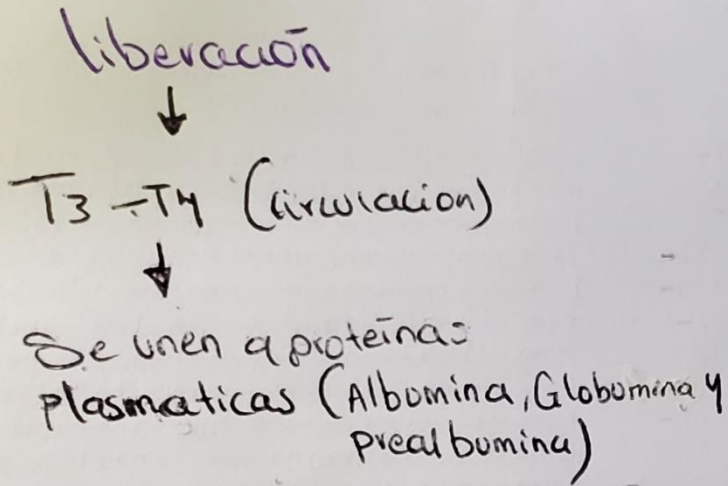 liberación
T3 - T4 (circulacion)
Se unen a proteínas
plasmaticas (Albumina, Globumina y
prealbumina)